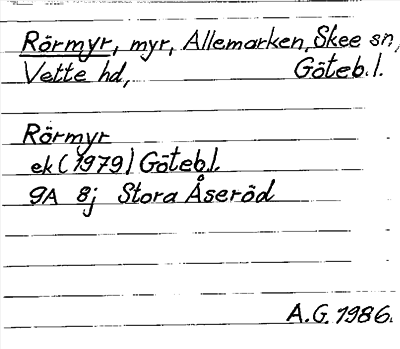 Rörmyr, myr, Allemarken, Skee sn,
Vette hd, Göteb.l.
Rörmyr
ek (1979) Göteb.l.
9A 8j Stora Åseröd
A.G. 1986.